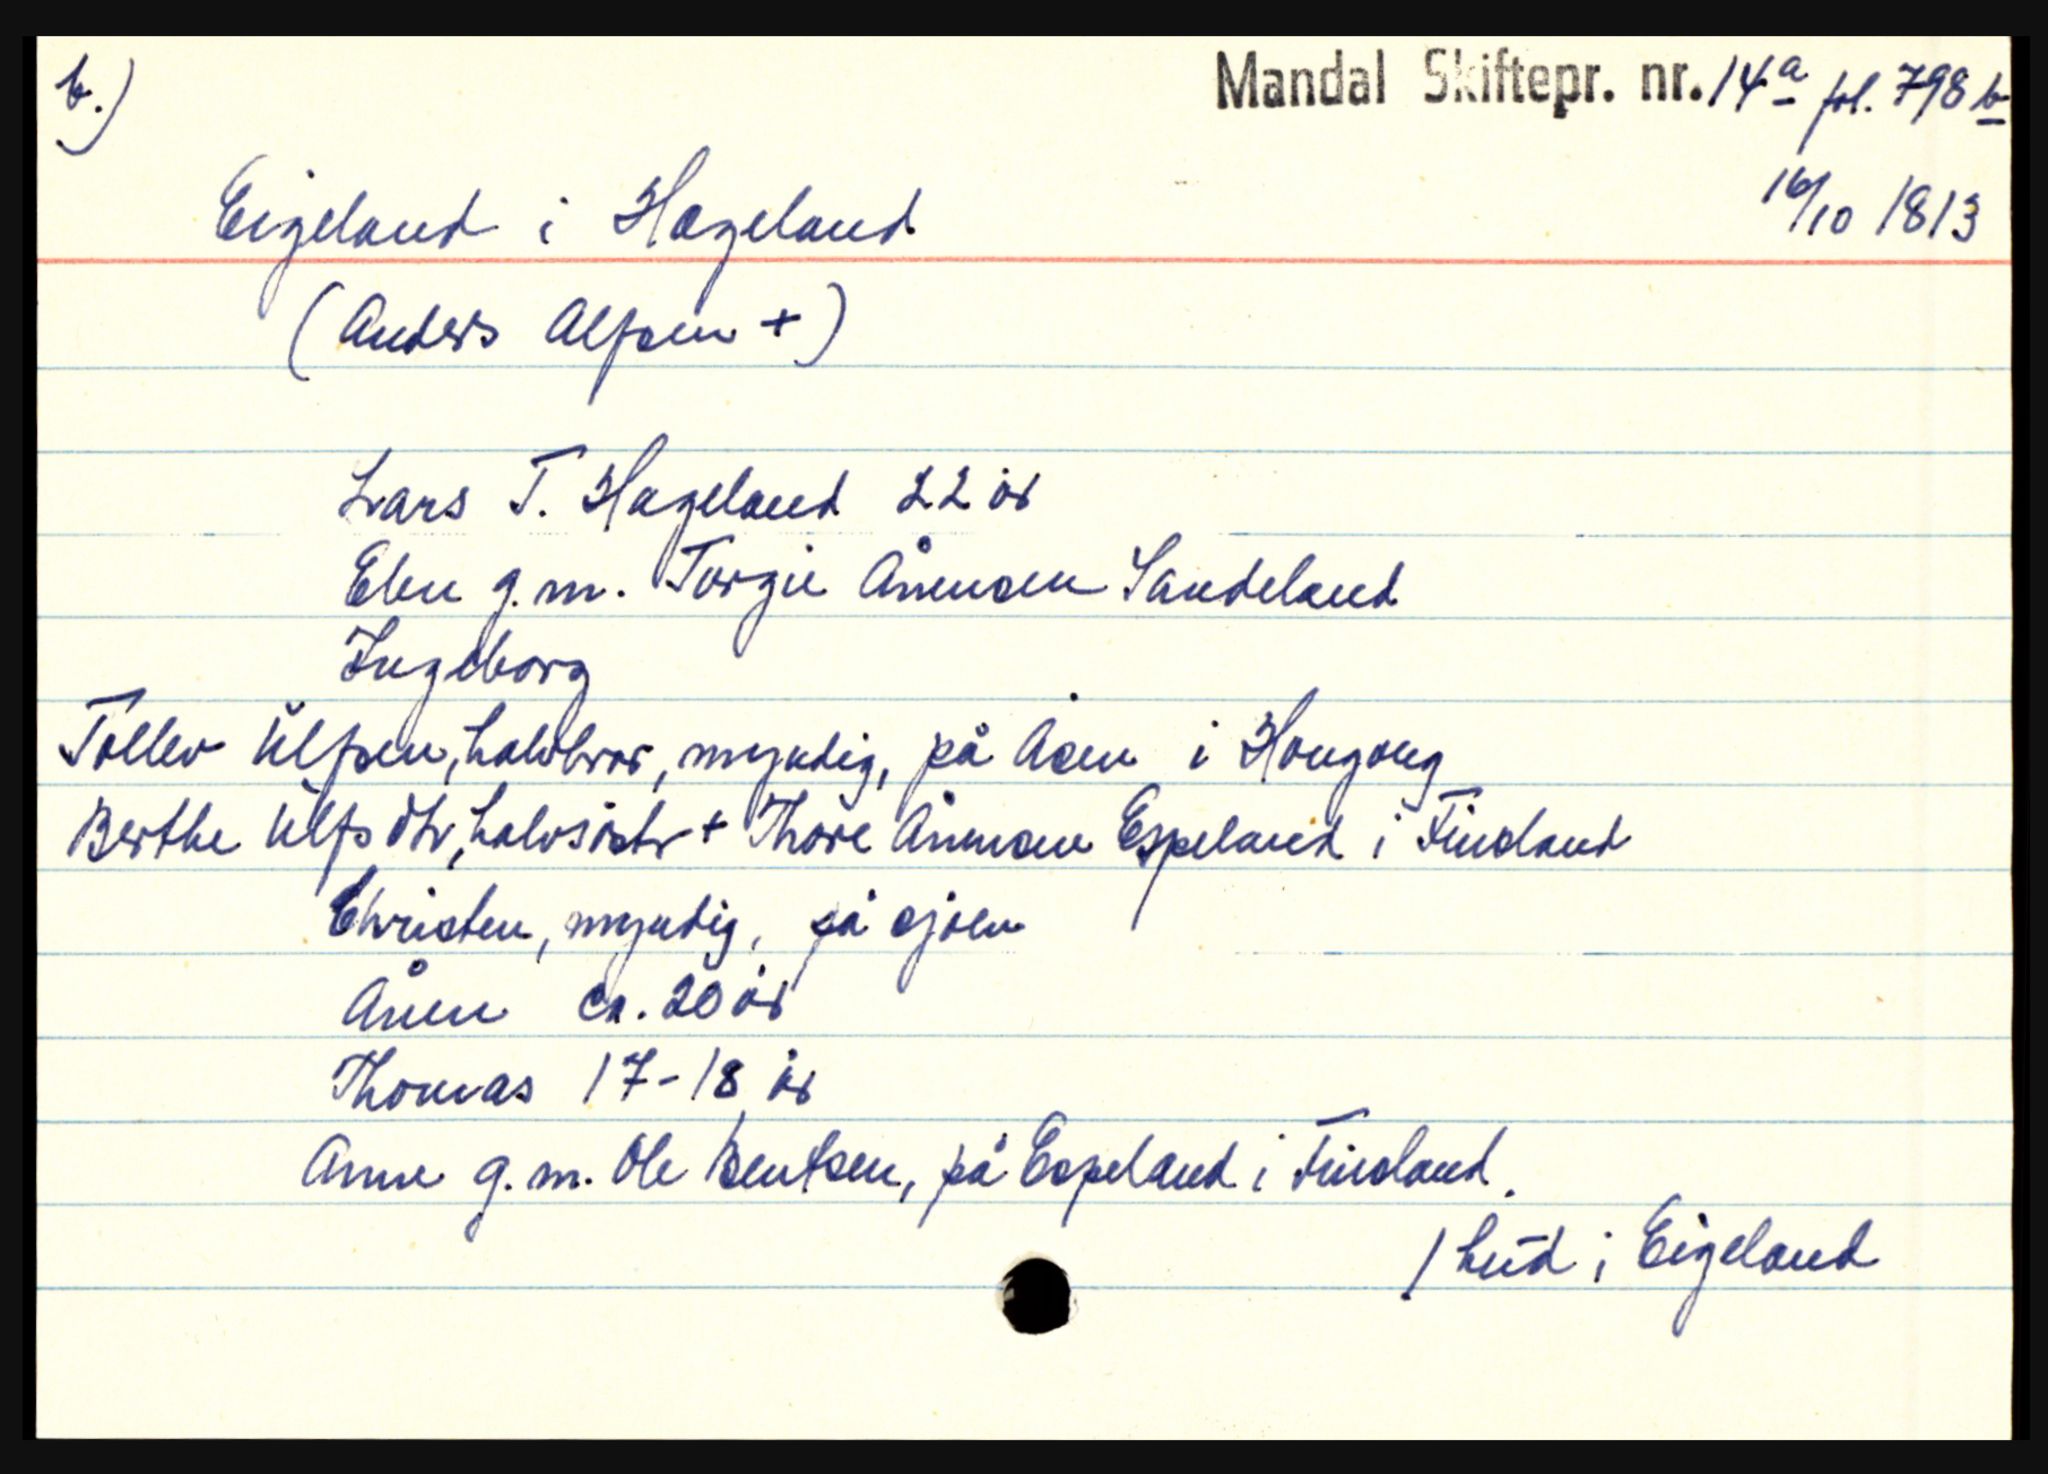 b.)
Mandal Skiftepr. nr. 14a fol. 798b
16/10 1813
Eigeland i Hægeland
(Anders Alfsen +)
Lars T. Hageland 22 år
Elen g.m. Torgie Ånensen Sandeland
Ingeborg
Tollev Ulfsen, halvbror, myndig, på Åsen i Hongong
Berthe Ulfsdtr, halvsöstr + Thore Ånensen Espeland i Finsland
Christen, myndig, på sjøen
Ånen ca. 20 år
Thomas 17-18 år
Anne g.m. Ole Bentsen, på Espeland i Finsland.
1 hud i Eigeland